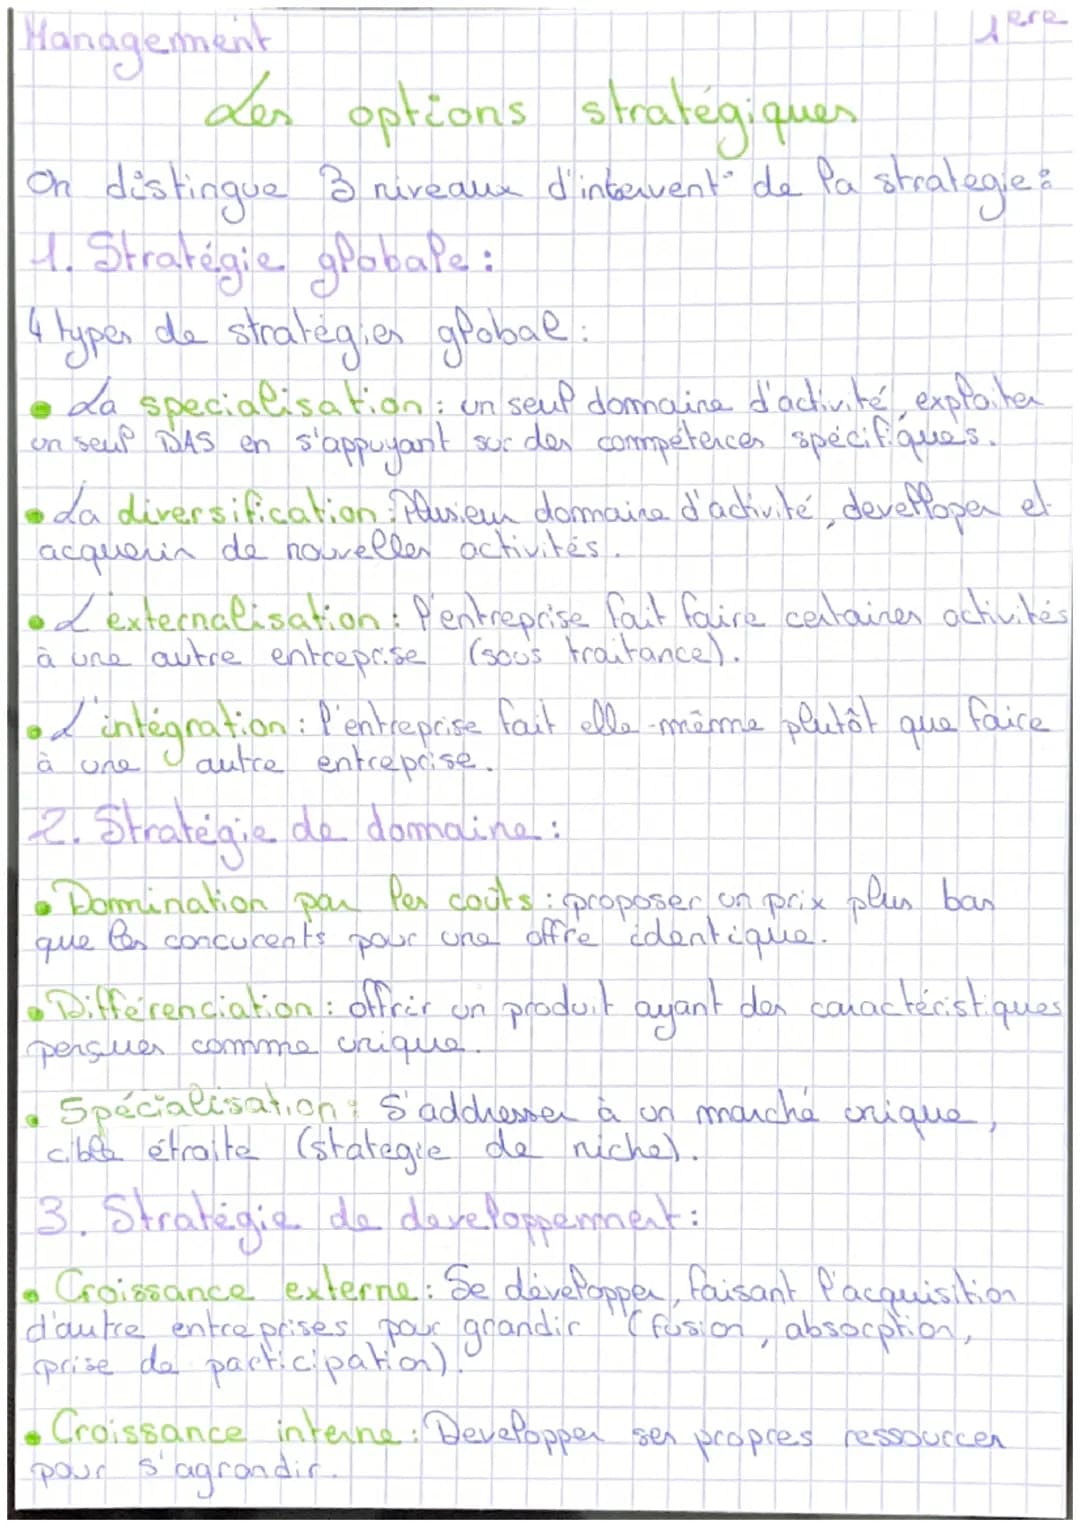 Management
1ère
Les options stratégiques
On distingue 3 niveaux d'intervent° de la strategie:
1. Stratégie globale :
4 types de stratégies global :
• La specialisation : un seul domaine d'activité, exploiter
un seul DAS en s'appuyant sur des compétences spécifiques.
• La diversification : Plusieur domaine d'activité, develloper et
acquerir de nouvelles activités.
• L'externalisation : l'entreprise fait faire certaines activités
à une autre entreprise (sous traitance).
• L'intégration : l'entreprise fait elle-même plutôt que faire
à une autre entreprise.
2. Stratégie de domaine :
• Domination par les coûts : proposer un prix plus bas
que les concurents pour une offre identique.
• Différenciation : offrir un produit ayant des caractéristiques
perçues comme unique.
• Spécialisation : S'addresser à un marché unique,
cible étroite (stategie de niche).
3. Stratégie de developpement :
• Croissance externe : Se développer, faisant l'acquisition
d'autre entreprises pour grandir (fusion, absorption,
prise de participation).
• Croissance interne : Developper ses propres ressources
pour s'agrandir.